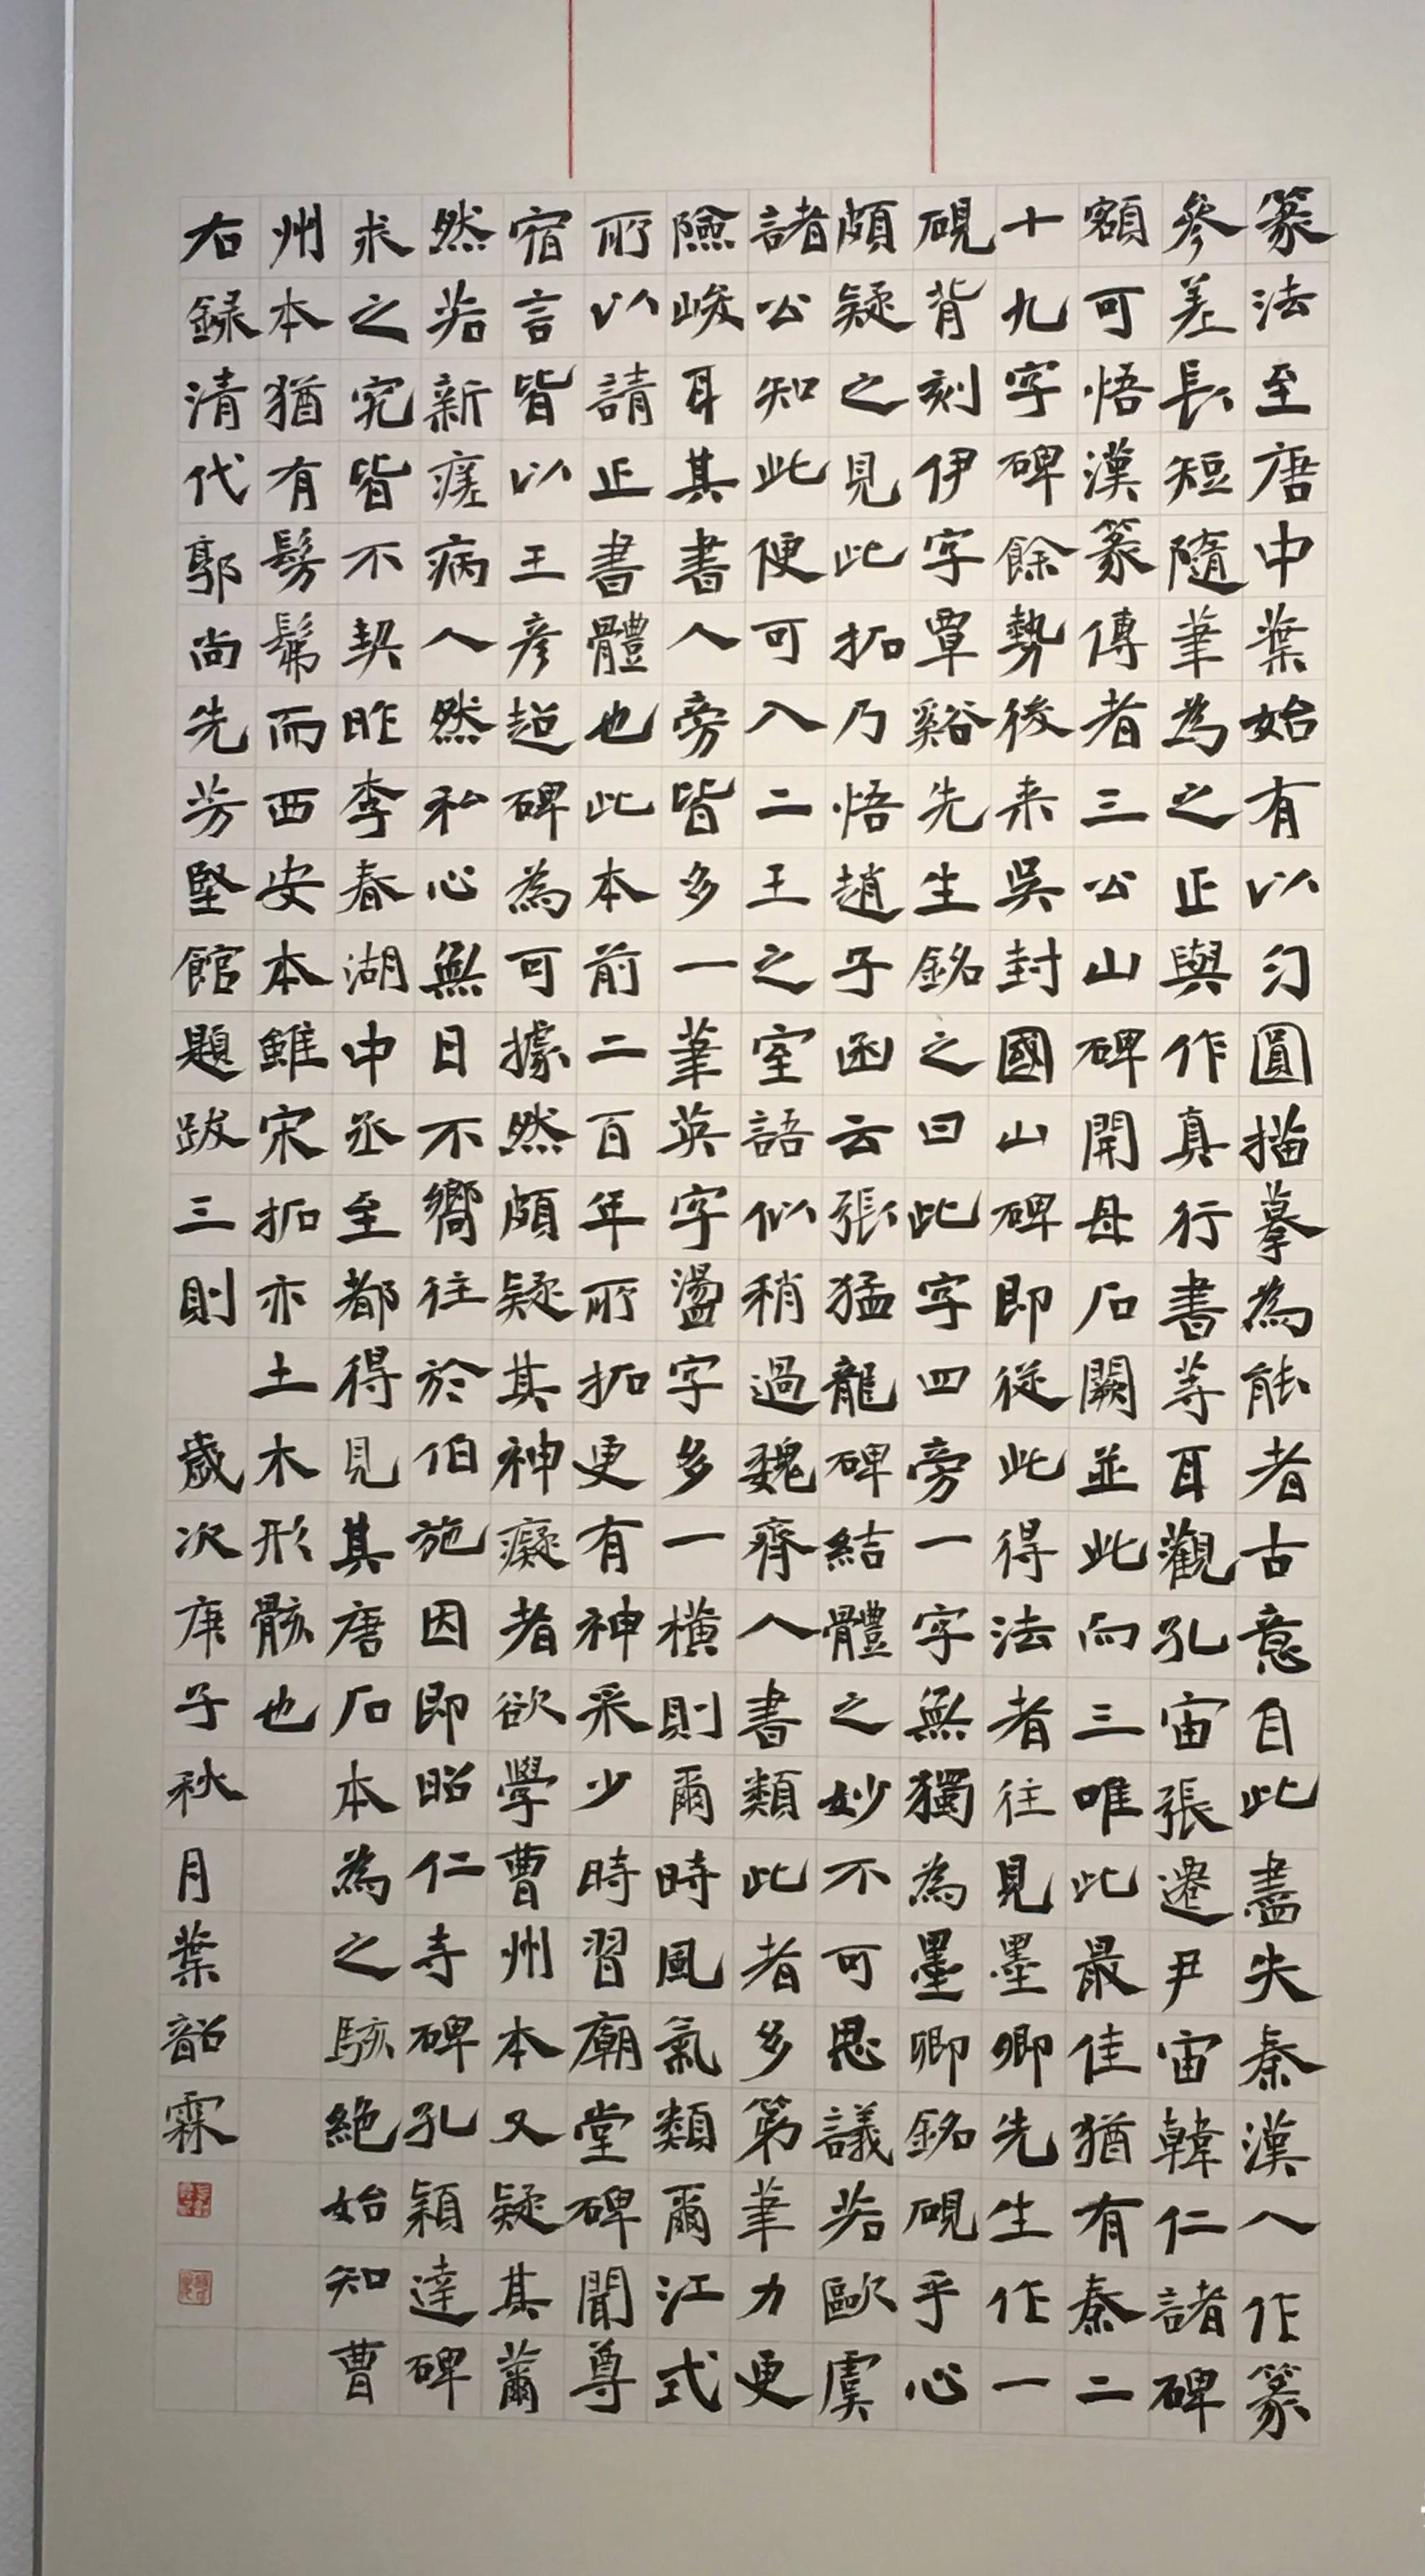 篆法至唐中葉始有以匀圓描摹為能者古意自此盡失秦漢人作篆
參差長短隨筆為之正與作真行書等耳觀孔宙張遷尹宙韓仁諸碑
額可悟漢篆傳者三公山碑開母石闕並此而三唯此最佳猶有秦二
十九字碑餘勢後来吳封國山碑即從此得法者往見墨卿先生作一
硯背刻伊字覃谿先生銘之曰此字四旁一字無獨為墨卿銘硯乎心
頗疑之見此拓乃悟趙子函云張猛龍碑結體之妙不可思議若歐虞
諸公知此便可入二王之室語似稍過魏齊人書類此者多第筆力更
險峻耳其書人旁皆多一筆英字盪字多一橫則爾時風氣類爾江式
所以請正書體也此本前二百年所拓更有神采少時習廟堂碑聞尊
宿言皆以王彦超碑為可據然頗疑其神癡者欲學曹州本又疑其薾
然若新瘥病人然私心無日不嚮往於伯施因即昭仁寺碑孔穎達碑
求之究皆不契昨李春湖中丞至都得見其唐石本為之駭絕始知曹
州本猶有髣髴而西安本雖宋拓亦土木形骸也
右録清代郭尚先芳堅館題跋三則 歲次庚子秋月葉韶霖